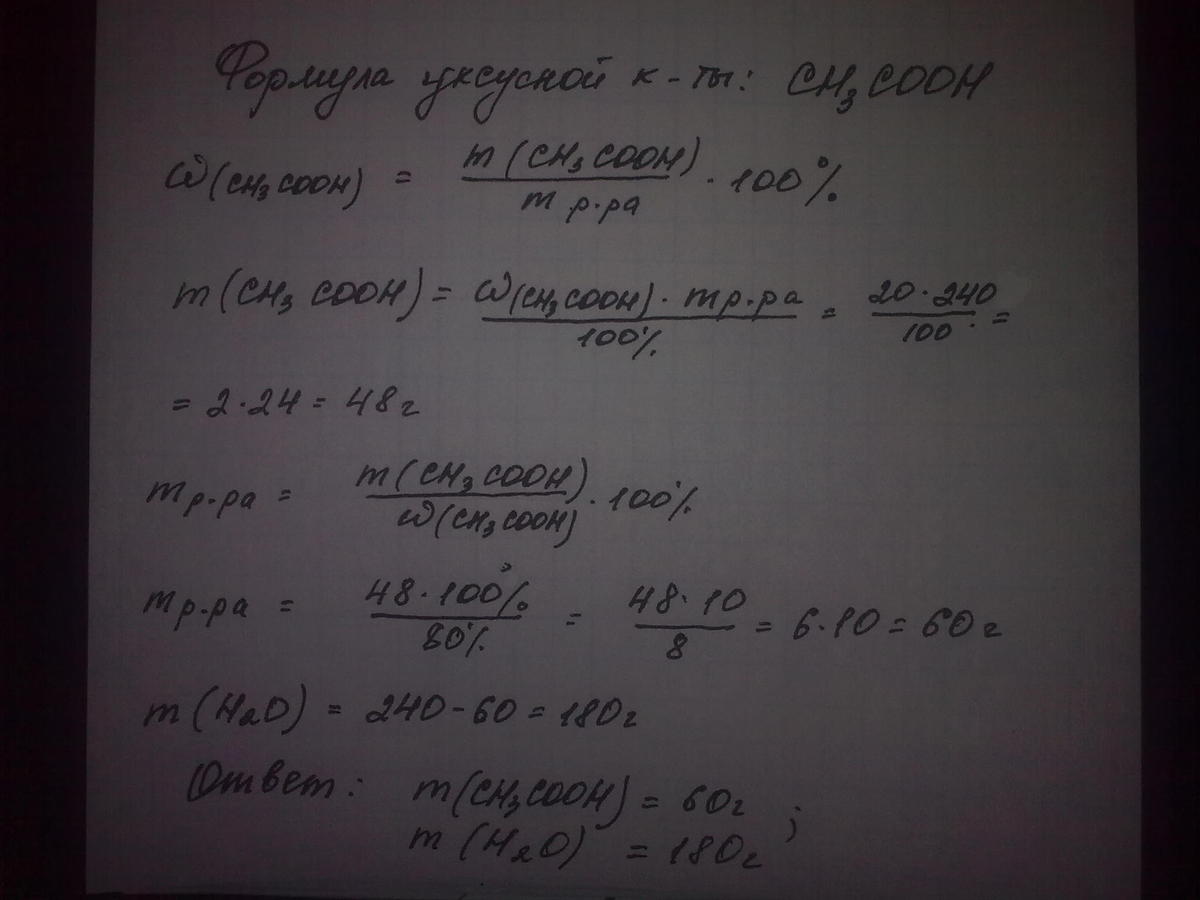 Формула уксусной к-ты: CH₃COOH
ω(CH₃COOH) = m(CH₃COOH) / m р-ра · 100%
m(CH₃COOH) = ω(CH₃COOH) · m р-ра / 100% = 20·240 / 100 =
= 2·24 = 48г
m р-ра = m(CH₃COOH) / ω(CH₃COOH) · 100%
m р-ра = 48·100% / 80% = 48·10 / 8 = 6·10 = 60г
m(H₂O) = 240-60 = 180г
Ответ: m(CH₃COOH) = 60г ;
m(H₂O) = 180г